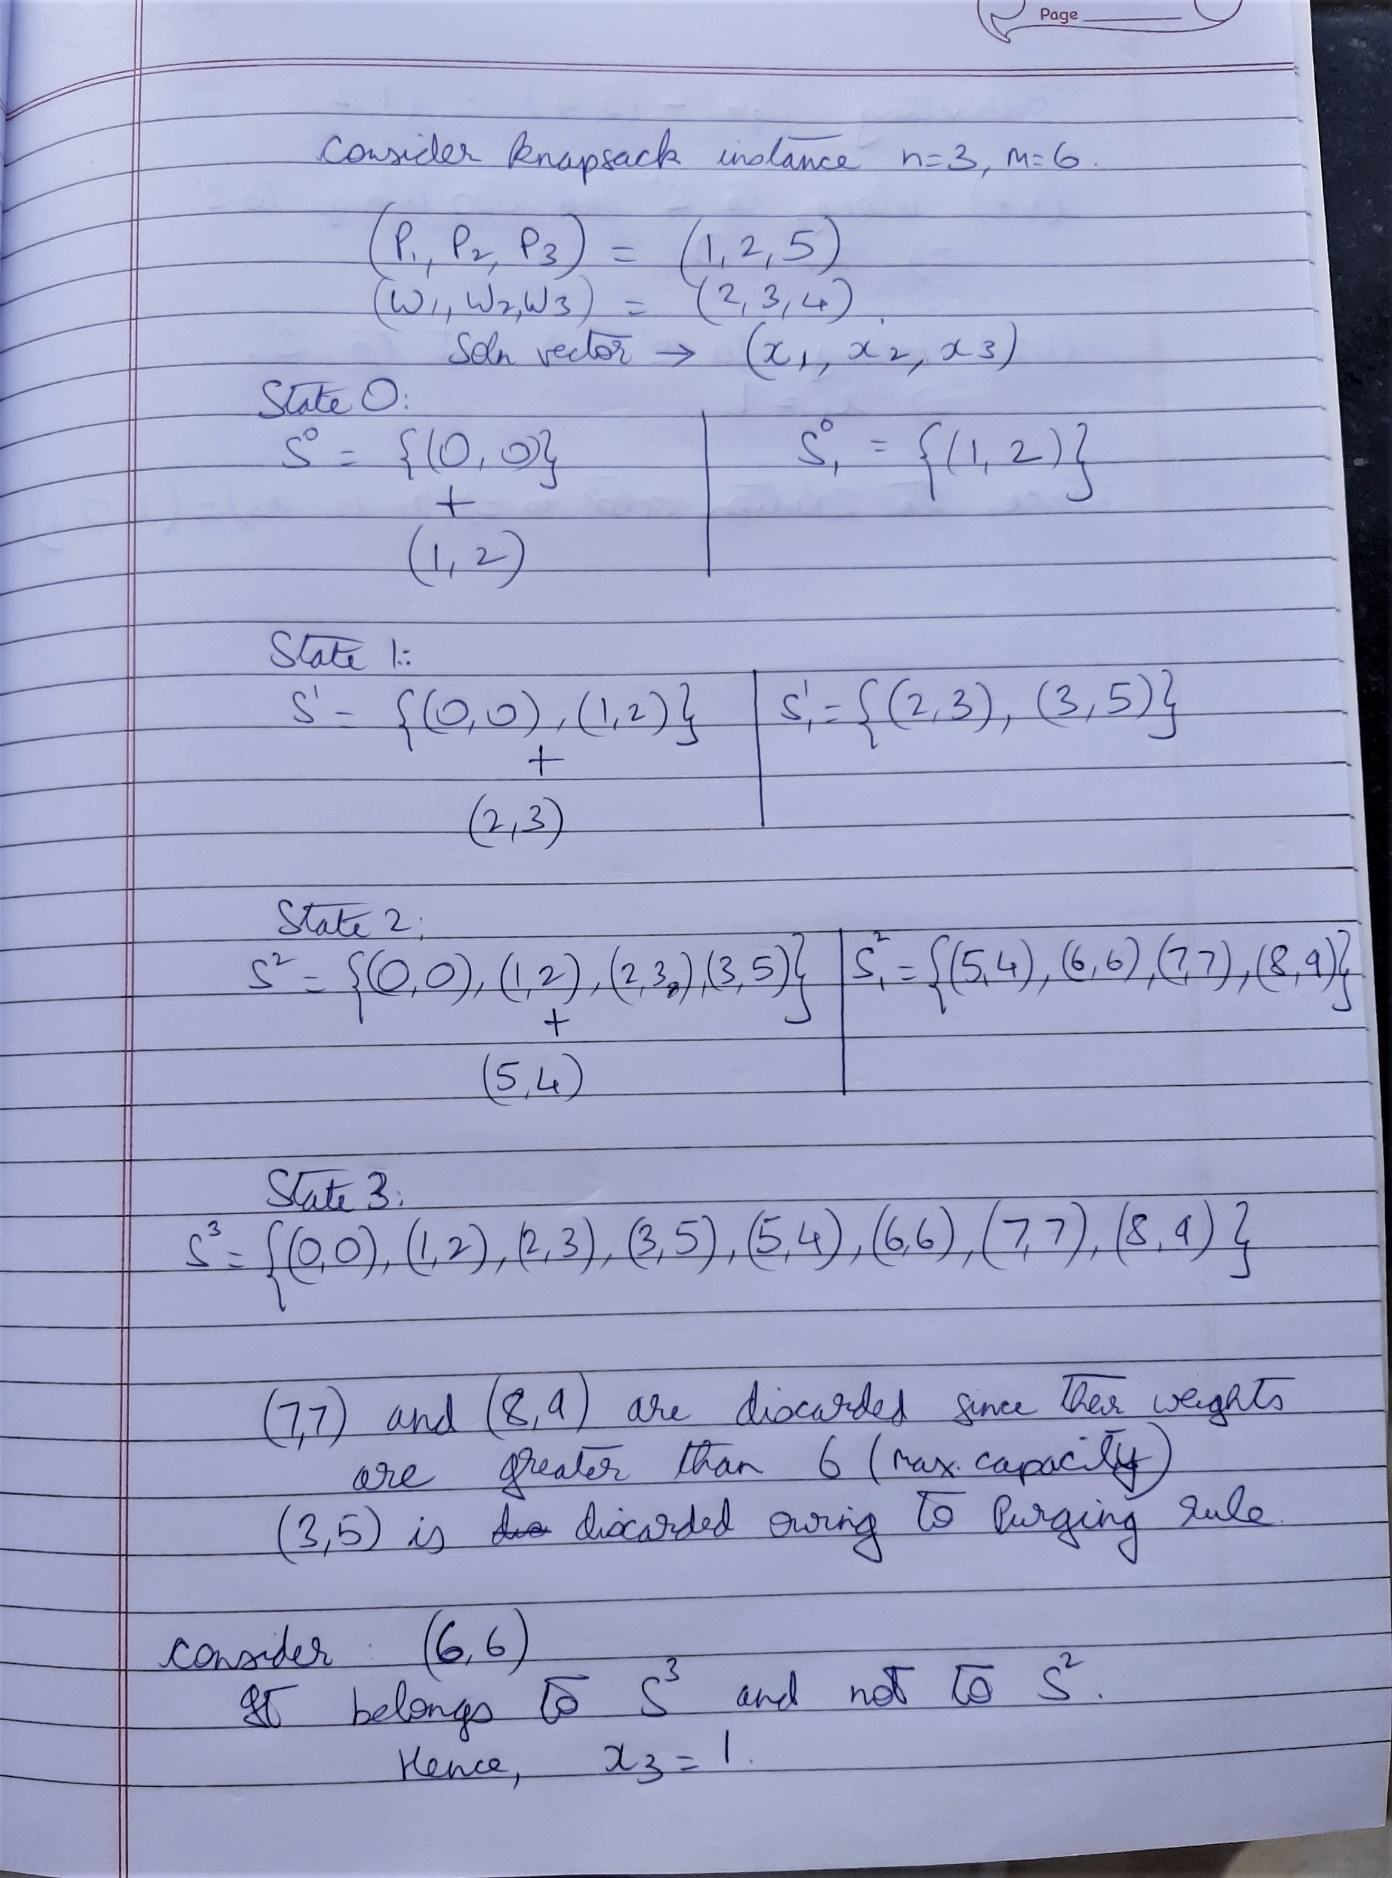 Page
Consider knapsack instance n=3, m=6.
(P₁, P₂, P₃) = (1, 2, 5)
(W₁, W₂, W₃) = (2, 3, 4)
Soln vector → (x₁, x₂, x₃)
State 0:
S⁰ = {(0, 0)} S₁⁰ = {(1, 2)}
+
(1, 2)
State 1:
S¹ = {(0,0), (1,2)} S₁¹ = {(2,3), (3,5)}
+
(2,3)
State 2:
S² = {(0,0), (1,2), (2,3), (3,5)} S₁² = {(5,4), (6,6), (7,7), (8,9)}
+
(5,4)
State 3:
S³ = {(0,0), (1,2), (2,3), (3,5), (5,4), (6,6), (7,7), (8,9)}
(7,7) and (8,9) are discarded since their weights
are greater than 6 (max. capacity)
(3,5) is discarded owing to Purging rule.
consider (6,6)
It belongs to S³ and not to S².
Hence, x₃ = 1.